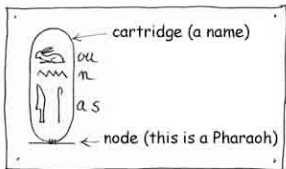 cartridge (a name)
ou
n
as
node (this is a Pharaoh)